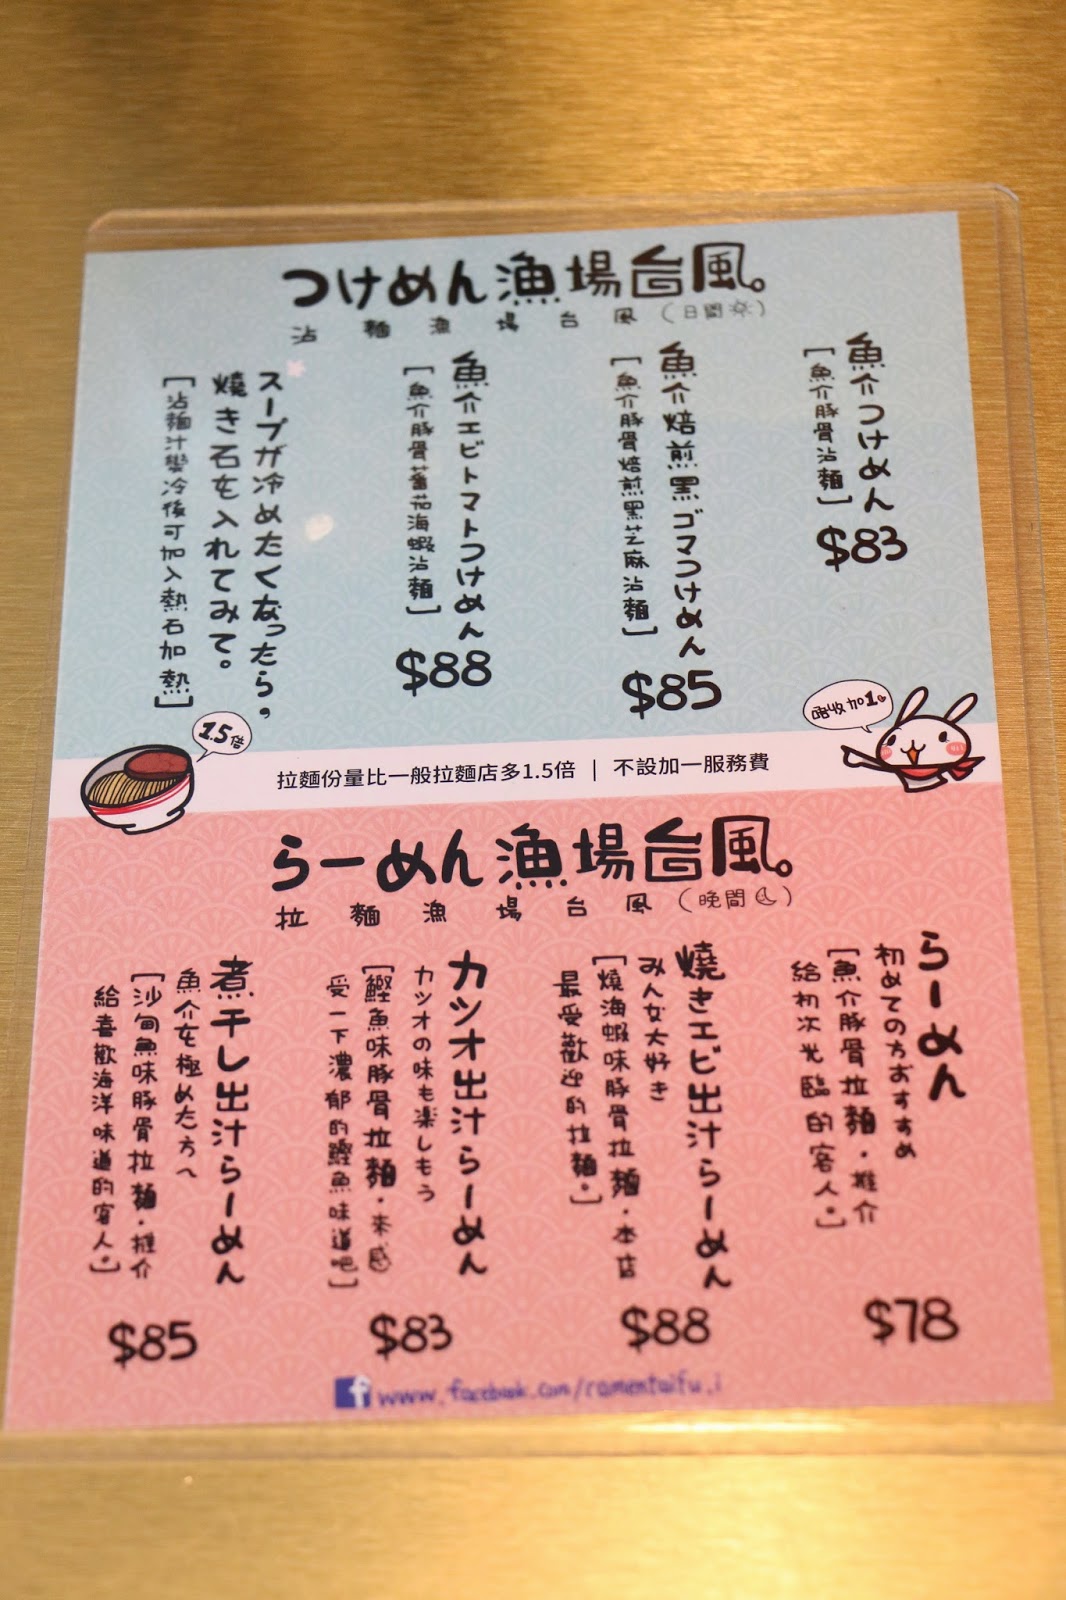 つけめん漁場台風。
沾麵漁場台風(日間)
魚介つけめん
[魚介豚骨沾麵]
$83
魚介焙煎黒ゴマつけめん
[魚介豚骨焙煎黑芝麻沾麵]
$85
魚介エビトマトつけめん
[魚介豚骨蕃茄海蝦沾麵]
$88
スープが冷めたくなったら。
焼き石を入れてみて。
[沾麵汁變冷後可加入熱石加熱]
1.5倍
拉麵份量比一般拉麵店多1.5倍 | 不設加一服務費
唔收加1
らーめん漁場台風。
拉麵漁場台風(晚間)
らーめん
初めての方おすすめ
[魚介豚骨拉麵·推介
給初次光臨的客人。]
$78
焼きエビ出汁らーめん
みんな大好き
[燒海蝦味豚骨拉麵·本店
最受歡迎的拉麵。]
$88
カツオ出汁らーめん
カツオの味も楽しもう
[鰹魚味豚骨拉麵·來感
受一下濃郁的鰹魚味道吧]
$83
煮干し出汁らーめん
魚介を極めた方へ
[沙甸魚味豚骨拉麵·推介
給喜歡海洋味道的客人。]
$85
www.facebook.com/ramentaifu.i